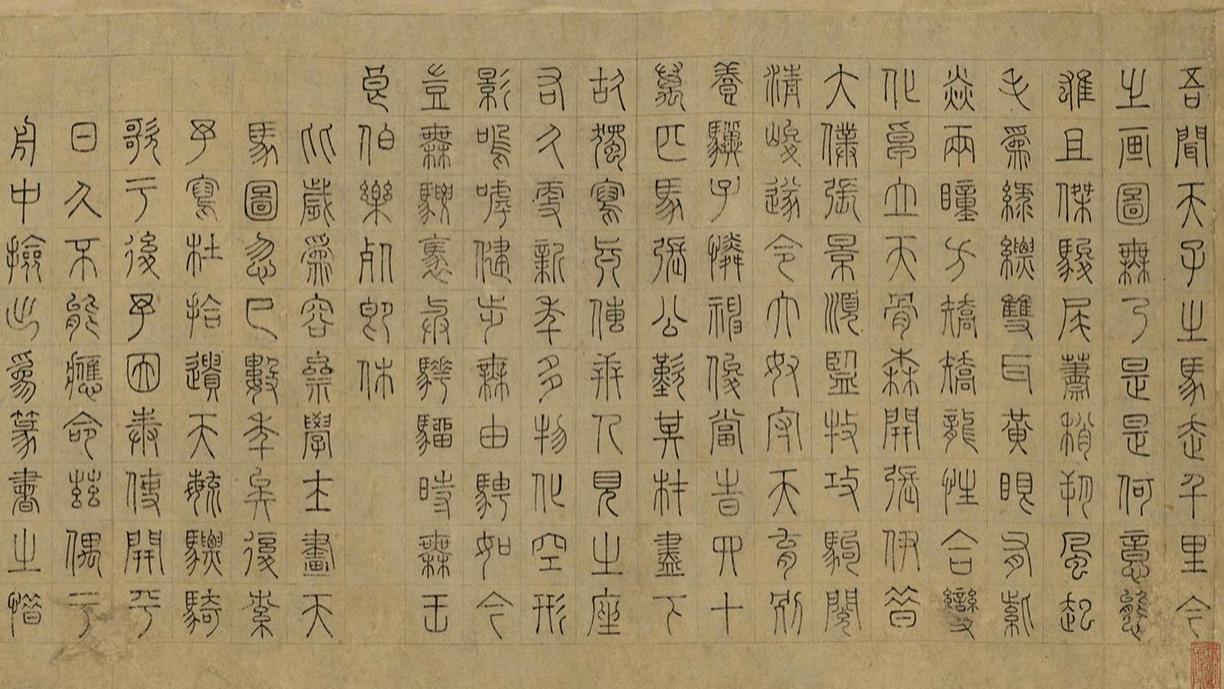 吾聞天子之馬走千里今
之画圖無乃是是何意態
雄且傑駿尾蕭梢朔風起
毛為綠縹雙耳黃眼有紫
焱兩瞳方矯矯龍性合變
化卓立天骨森開張伊昔
大僕張景順監牧攻駒閱
清峻遂令大奴守天育別
養驥子憐神俊當昔四十
萬匹馬張公歎其材盡下
故獨寫真傳示人見之座
右久更新年多物化空形
影嗚呼健步無由騁如今
豈無騕褭與驊騮時無王
良伯樂死即休
此歲為容菴學士畫天
馬圖忽已數年矣後索
予寫杜拾遺天毓驃騎
歌于後予因奉使開平
日久不能應命茲偶于
舟中撿出為篆書之惜